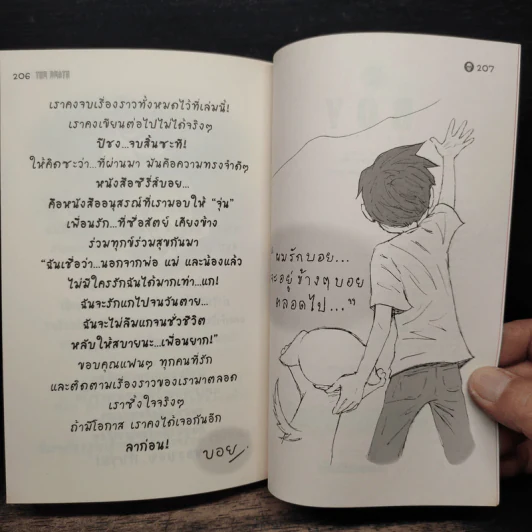 206
เราคงจบเรื่องราวทั้งหมดไว้ที่เล่มนี้!
เราคงเขียนต่อไปไม่ได้จริงๆ
ปิซง...จบสิ้นซะที!
ให้คิดซะว่า...ที่ผ่านมา มันคือความทรงจำดีๆ
หนังสือซีรี่ส์บอย...
คือหนังสืออนุสรณ์ที่เรามอบให้ "จุ่น"
เพื่อนรัก...ที่ซื่อสัตย์ เคียงข้าง
ร่วมทุกข์ร่วมสุขกันมา
"ฉันเชื่อว่า...นอกจากพ่อ แม่ และน้องแล้ว
ไม่มีใครรักฉันได้มากเท่า...แก!
ฉันจะรักแกไปจนวันตาย...
ฉันจะไม่ลืมแกจนชั่วชีวิต
หลับให้สบายนะ...เพื่อนยาก!"
ขอบคุณแฟนๆ ทุกคนที่รัก
และติดตามเรื่องราวของเรามาตลอด
เราซึ้งใจจริงๆ
ถ้ามีโอกาส เราคงได้เจอกันอีก
ลาก่อน!
บอย
207
ผมรักบอย...
จะอยู่ข้างๆ บอย
ตลอดไป..."